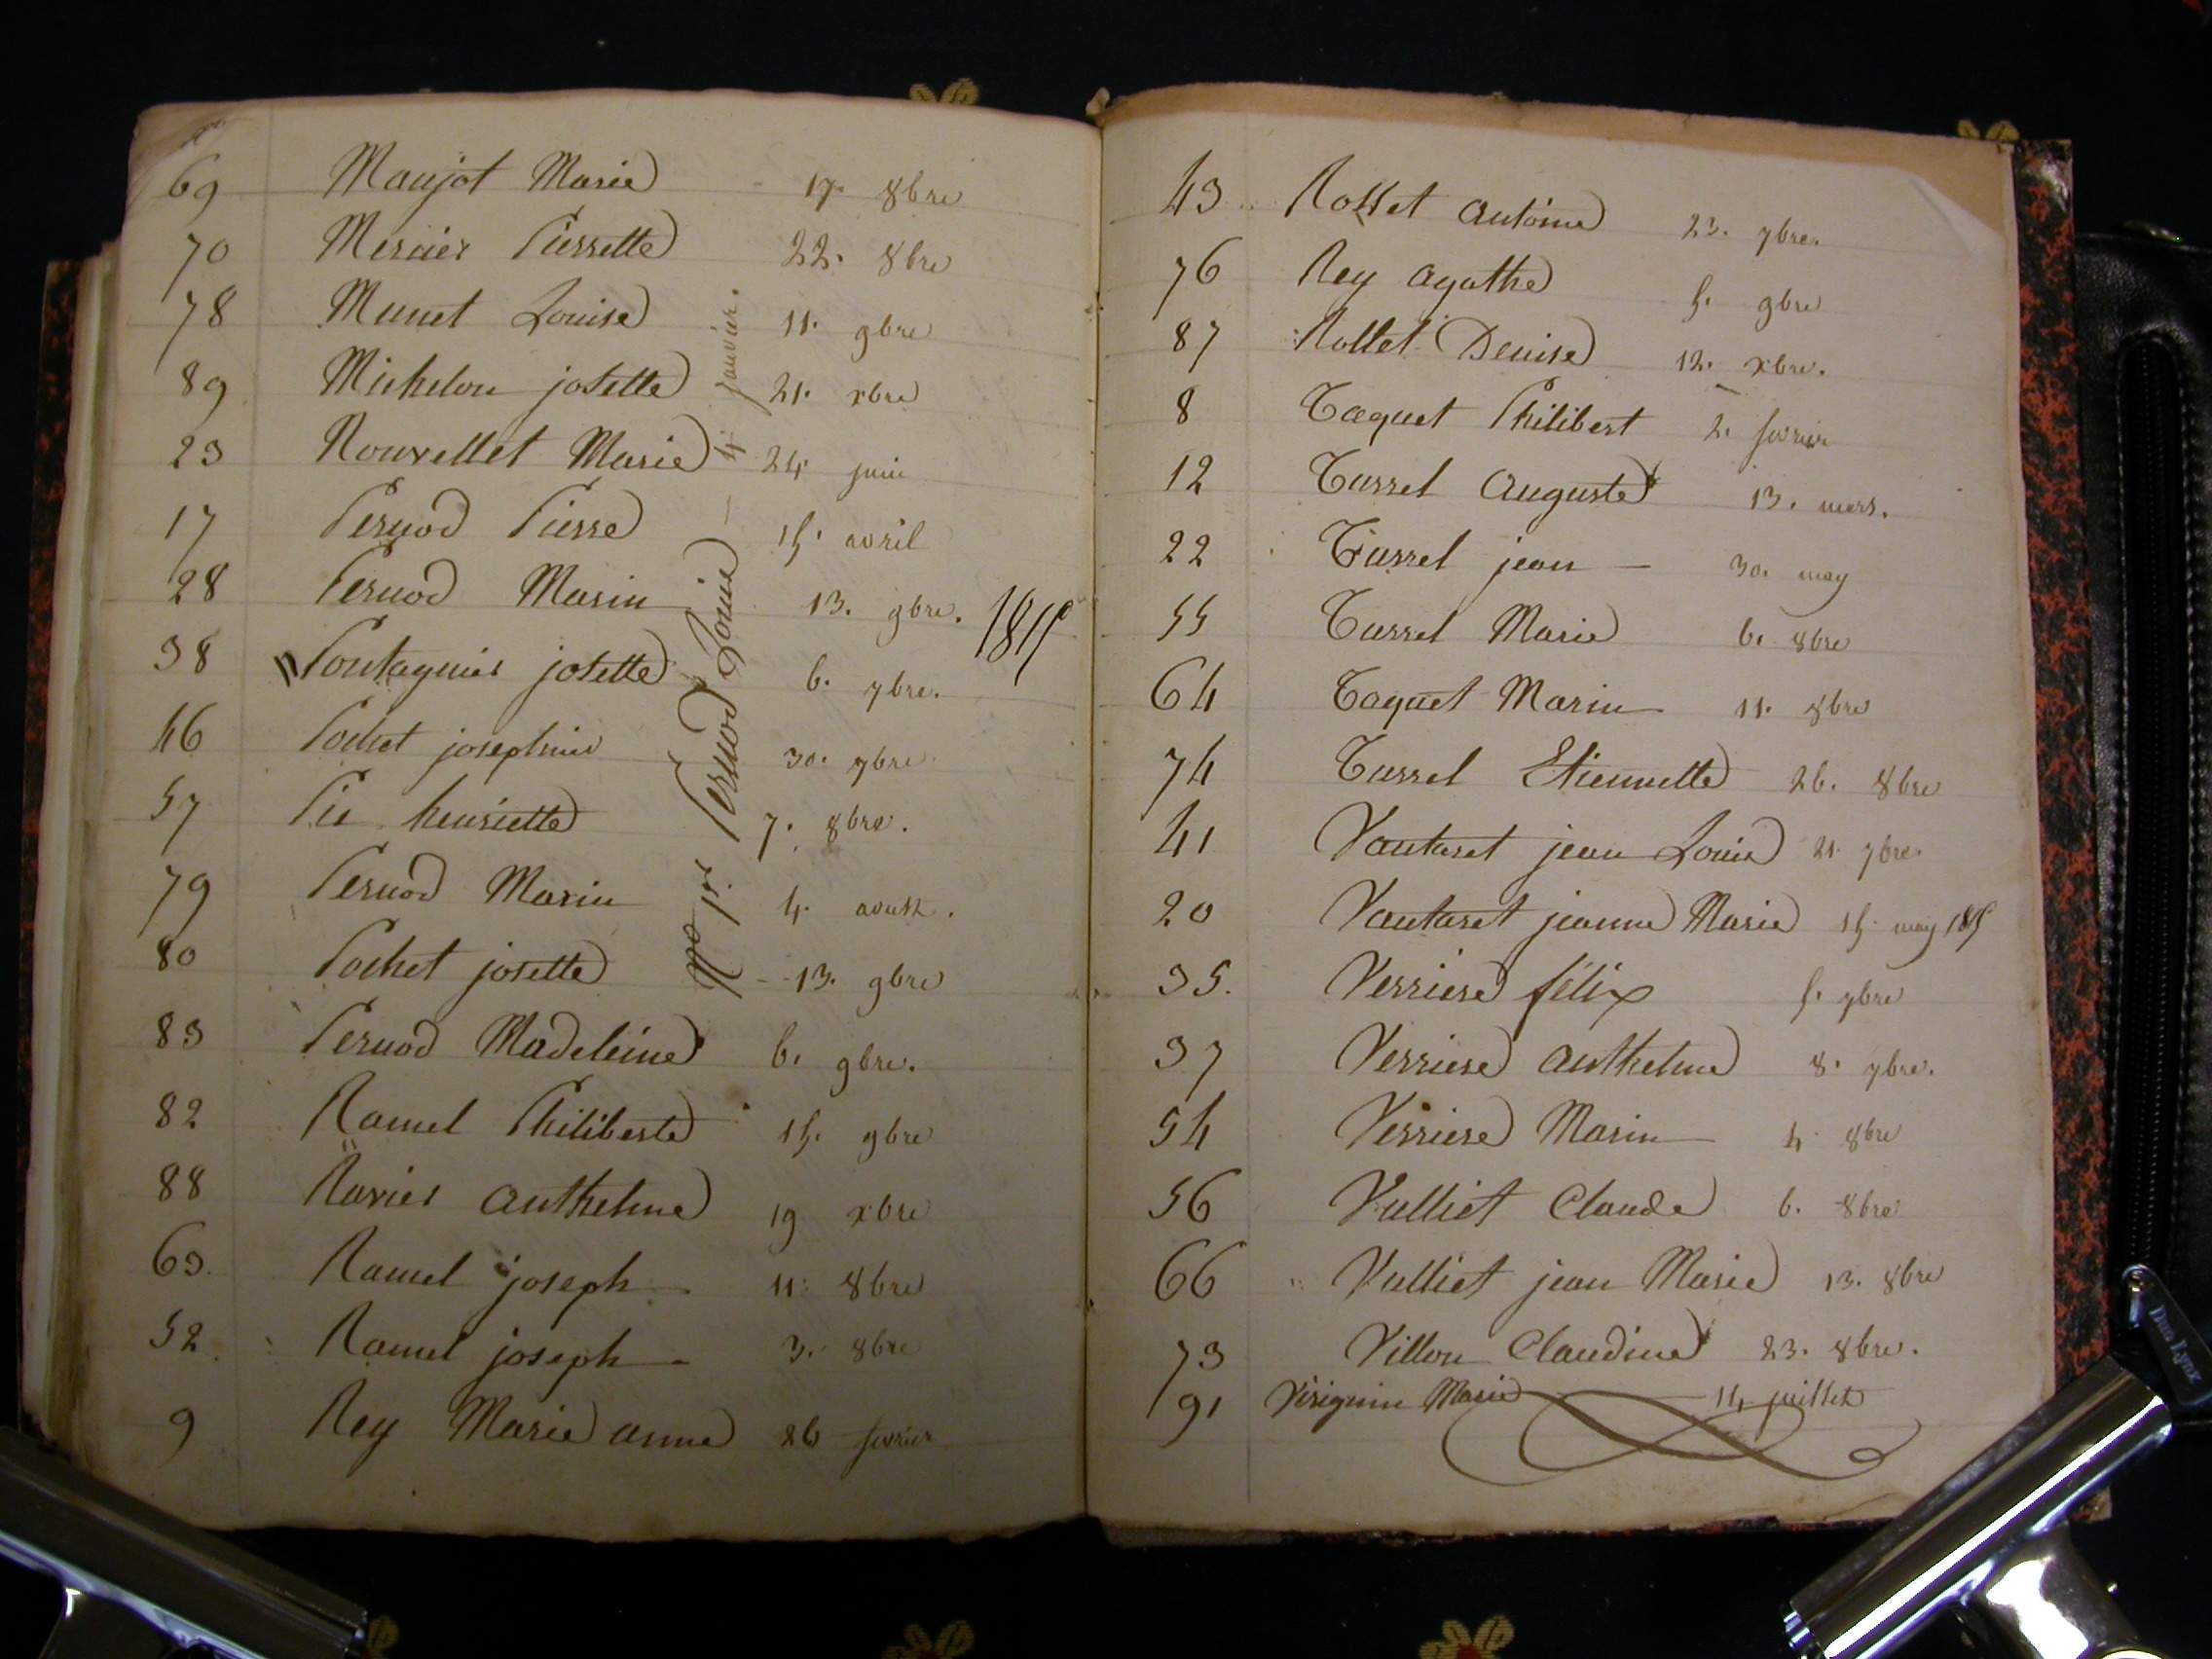 69 Maujot Marie 17. 8bre
70 Mercier Pierrette 22. 8bre
78 Munet Louise 11. 9bre
89 Michelon josette 21. xbre
23 Nouvellet Marie 24 juin
17 Pernod Pierre 15. avril
28 Pernod Marin 13. 9bre.
38 Pontagnier josette 6. 7bre.
46 Pochet josephine 30. 7bre
57 Pie henriette 7. 8bre.
79 Pernod Marin 4. aoust.
80 Pochet josette 13. 9bre
83 Pernod Madeleine 6. 9bre.
82 Ramel Philiberte 15. 9bre
88 Ravier anthelme 19 xbre
63. Ramel joseph 11. 8bre
52 Ramel joseph 3. 8bre
9 Rey Marie anne 26 fevrier
No 1er Pernod Louise — 4 janvier.
43 Rosset antoine 23. 7bre.
76 Rey agathe 5. 9bre
87 Rollet Denise 12. xbre.
8 Taquet Philibert 2. fevrier
12 Turrel Auguste 13. mars.
22 Turrel jean — 30. may
55 Turrel Marie 6. 8bre
64 Taquet Marin 11. 8bre
74 Turrel Etiennette 26. 8bre
41 Vautaret jean Louis 21. 7bre.
20 Vautaret jeanne Marie 15. may
35. Verriere félix 5. 7bre
37 Verriere anthelme 8. 7bre.
54 Verriere Marin 4 8bre
56 Vulliet Claude 6. 8bre
66 Vulliet jean Marie 13. 8bre
73 Villon Claudine 23. 8bre.
91 Virignin Marie 14 juillet